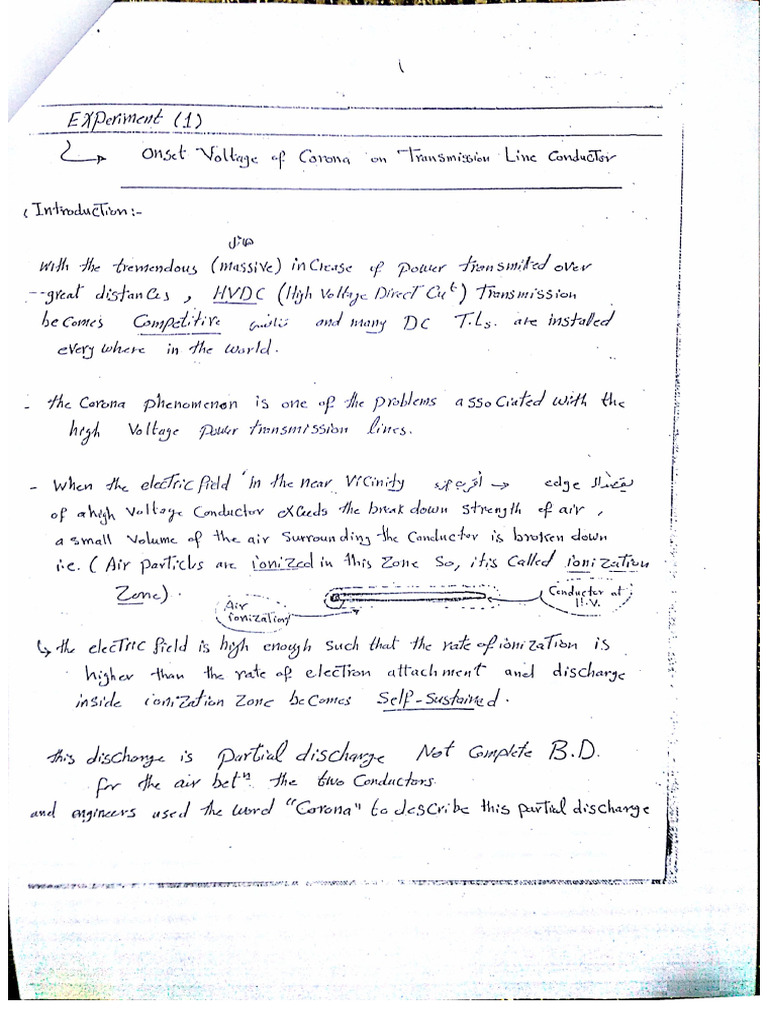 Experiment (1)
Onset Voltage of Corona on Transmission Line Conductor
Introduction:-
هائل
With the tremendous (massive) increase of power transmitted over
great distances, HVDC (High Voltage Direct Cut) Transmission
becomes Competitive and many DC T.Ls. are installed
every where in the world.
- the Corona phenomenon is one of the problems associated with the
high Voltage power transmission lines.
- When the electric field in the near Vicinity → edge
of a high Voltage Conductor exceeds the break down strength of air,
a small Volume of the air surrounding the Conductor is broken down
i.e. (Air particles are ionized in this Zone So, it is Called ionization
Zone).
Air
ionization
Conductor at
H.V.
↳ the electric field is high enough such that the rate of ionization is
higher than the rate of electron attachment and discharge
inside ionization Zone becomes Self-Sustained.
this discharge is partial discharge Not Complete B.D.
for the air betⁿ the two Conductors.
and engineers used the word "Corona" to describe this partial discharge